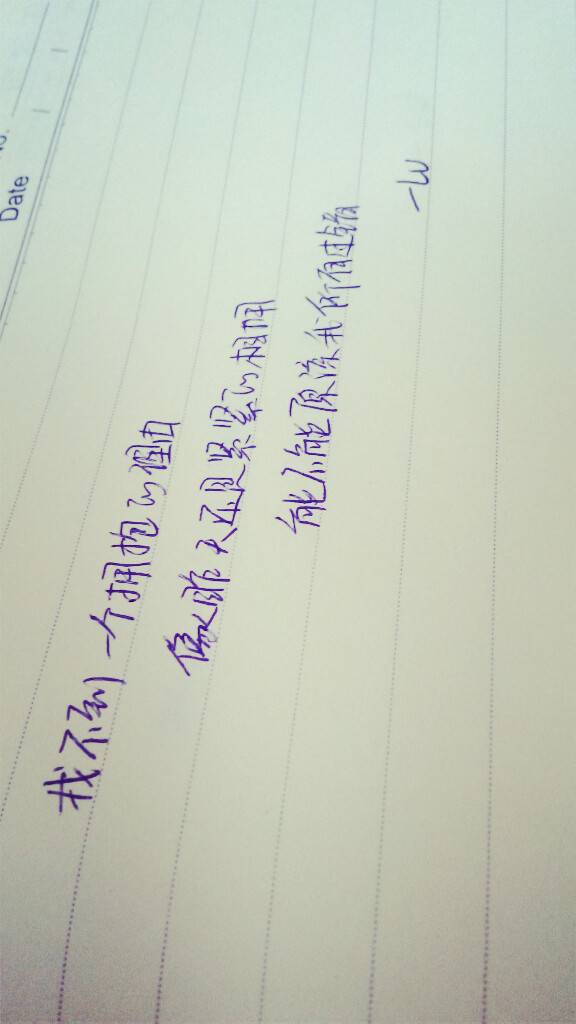 No.
Date
找不到一个拥抱的理由
像昨天还是紧紧的相拥
能不能原谅我所有过错
-W